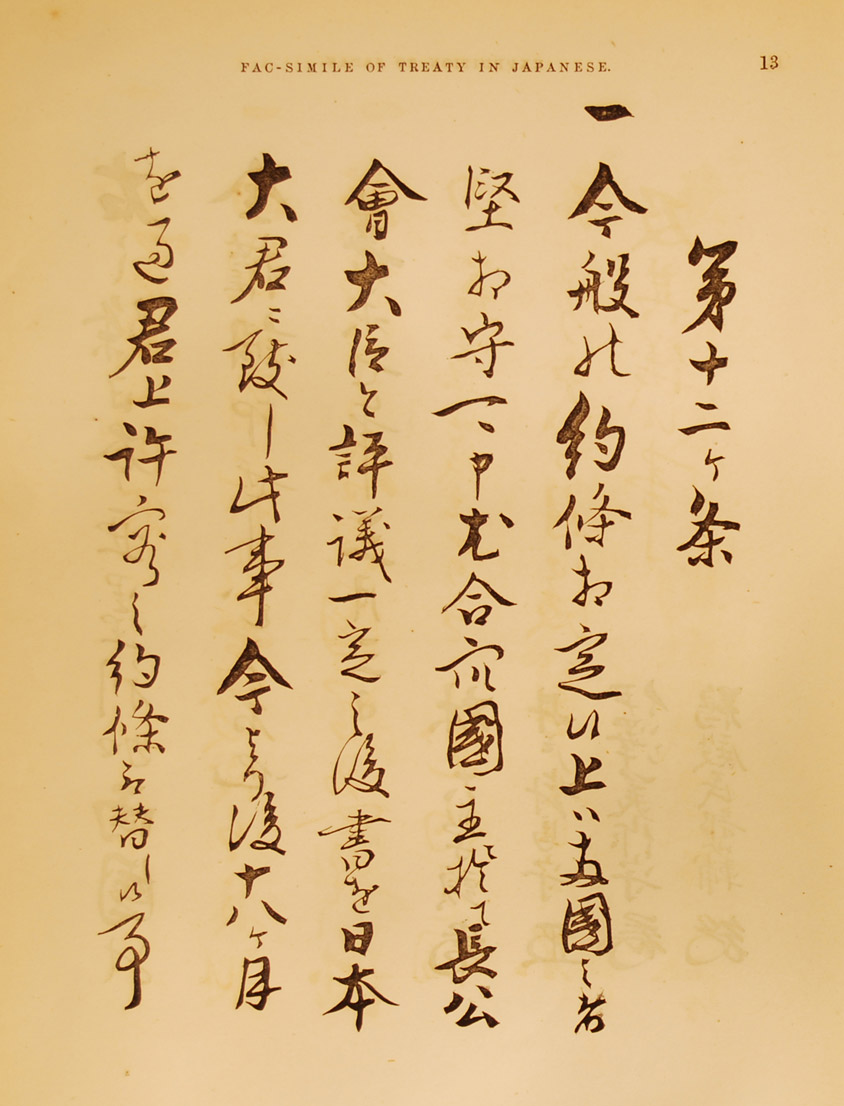 FAC-SIMILE OF TREATY IN JAPANESE.
13
第十二ケ条
一
今般の約條相定候上ハ両国之者
堅相守可申尤合衆國主於て長公
會大臣と評議一定之後書を日本
大君ニ致し此事今より後十八ケ月
を過君上許容之約條取替し候事